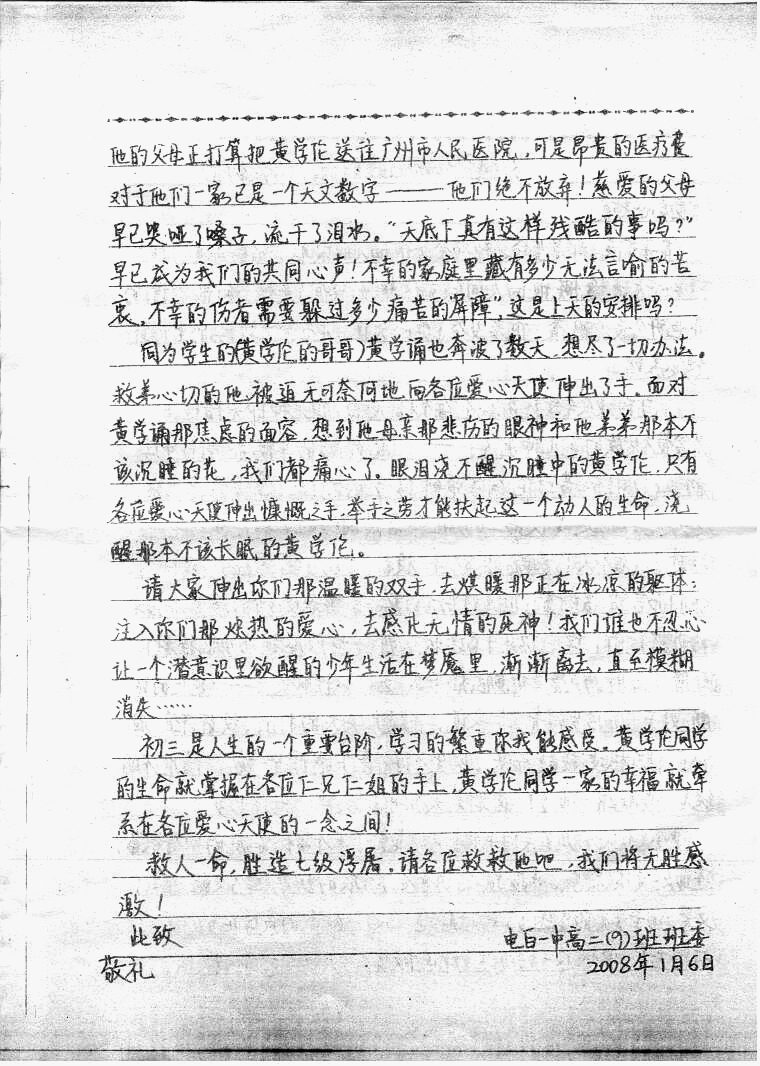 他的父母正打算把黄学伦送往广州市人民医院，可是昂贵的医疗费
对于他们一家已是一个天文数字——他们绝不放弃！慈爱的父母
早已哭哑了嗓子，流干了泪水。“天底下真有这样残酷的事吗？”
早已成为我们的共同心声！不幸的家庭里藏有多少无法言喻的苦
衷，不幸的伤者需要躲过多少痛苦的“屏障”，这是上天的安排吗？
同为学生的(黄学伦的哥哥)黄学诵也奔波了数天，想尽了一切办法。
救弟心切的他，被迫无可奈何地向各位爱心天使伸出了手。面对
黄学诵那焦虑的面容，想到他母亲那悲伤的眼神和他弟弟那本不
该沉睡的花，我们都痛心了。眼泪浇不醒沉睡中的黄学伦，只有
各位爱心天使伸出慷慨之手，举手之劳才能扶起这一个动人的生命，浇
醒那本不该长眠的黄学伦。
请大家伸出你们那温暖的双手，去煨暖那正在冰凉的躯体；
注入你们那炽热的爱心，去感化无情的死神！我们谁也不忍心
让一个潜意识里欲醒的少年生活在梦魇里，渐渐离去，直至模糊
消失……
初三是人生的一个重要台阶，学习的繁重你我能感受。黄学伦同学
的生命就掌握在各位仁兄仁姐的手上，黄学伦同学一家的幸福就牵
系在各位爱心天使的一念之间！
救人一命，胜造七级浮屠。请各位救救他吧，我们将无胜感
激！
此致 电白一中高二(9)班班委
敬礼 2008年1月6日